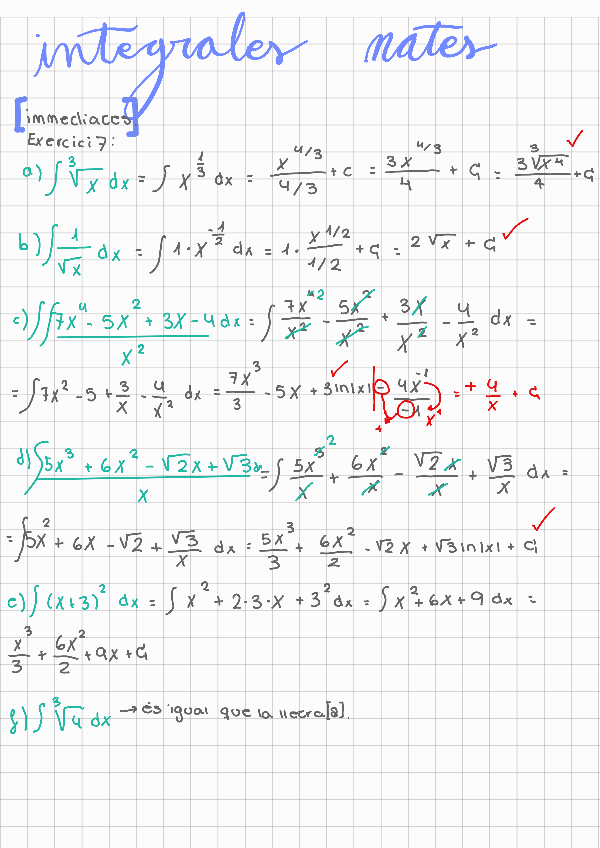 integrales nates
[immediaces]
Exercici 7:
a) ∫ ∛x dx = ∫ x^(1/3) dx = x^(4/3) / (4/3) + c = 3x^(4/3) / 4 + C = 3∛(x^4) / 4 + C ✓
b) ∫ 1/√x dx = ∫ 1·x^(-1/2) dx = 1 · x^(1/2) / (1/2) + C = 2√x + C ✓
c) ∫∫ (7x^4 - 5x^2 + 3x - 4) dx / x^2 = ∫ 7x^4 2 / x^2 - 5x^2 / x^2 + 3x / x^2 - 4 / x^2 dx =
= ∫ 7x^2 - 5 + 3/x - 4/x^2 dx = 7x^3 / 3 - 5x + 3 ln|x| ✓ | - 4x^-1 / -1 = + 4/x + C
+ x^1
d) ∫ (5x^3 + 6x^2 - √2x + √3) / x dx = ∫ 5x^3 2 / x + 6x^2 / x - √2x / x + √3 / x dx =
= ∫ 5x^2 + 6x - √2 + √3/x dx = 5x^3 / 3 + 6x^2 / 2 - √2x + √3 ln|x| + C ✓
e) ∫ (x+3)^2 dx = ∫ x^2 + 2·3·x + 3^2 dx = ∫ x^2 + 6x + 9 dx =
x^3 / 3 + 6x^2 / 2 + 9x + C
f) ∫ ∛4 dx → és igual que la lletra [a].